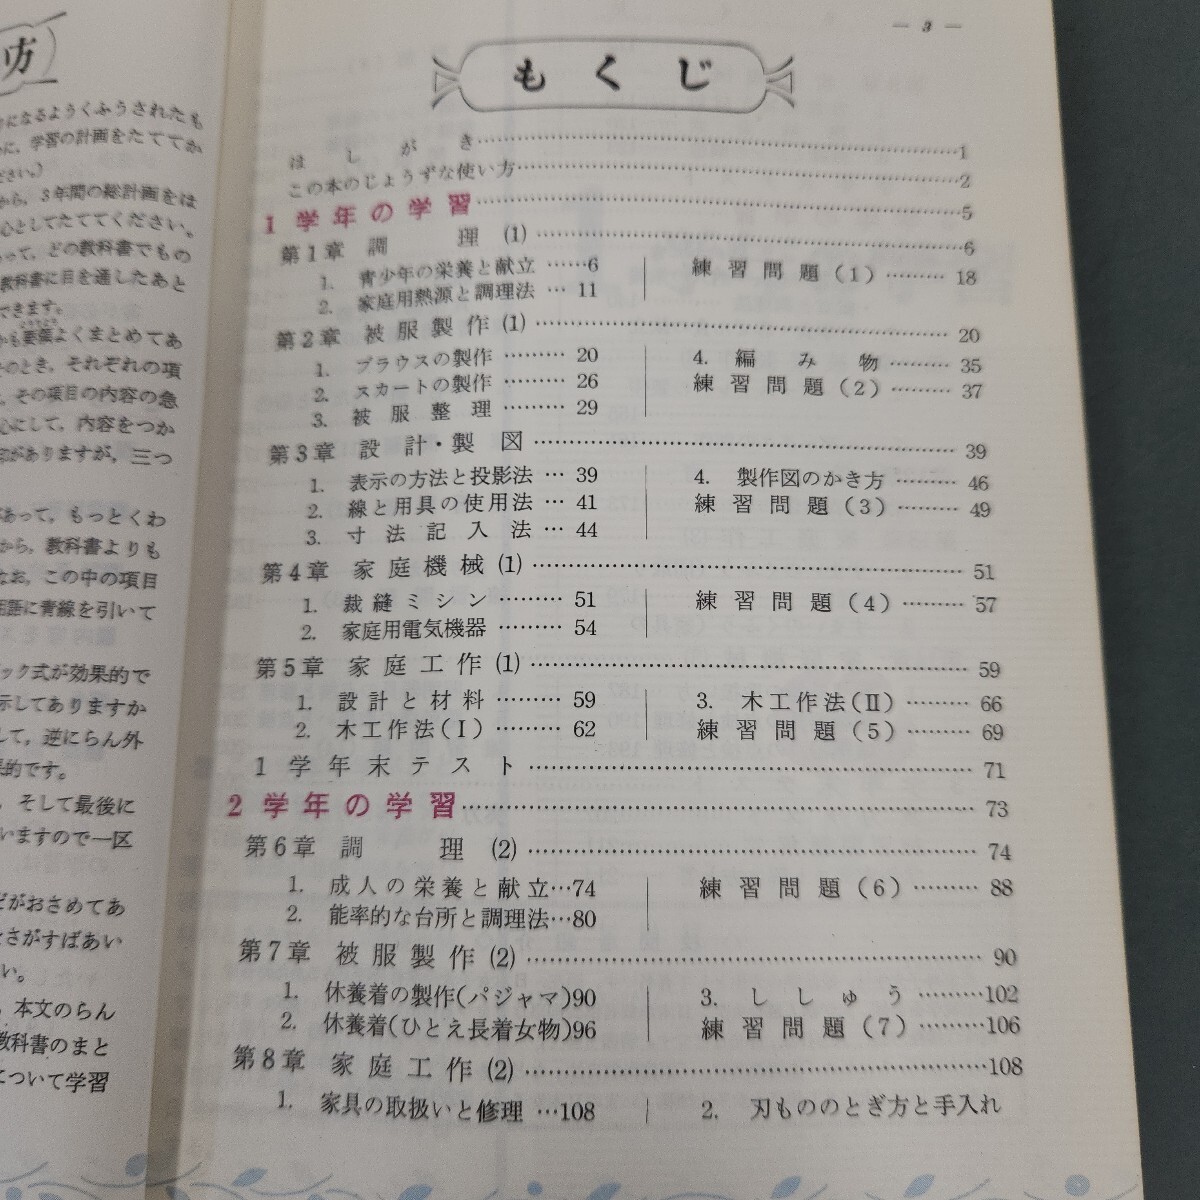 方
になるようくふうされたも
に，学習の計画をたててか
ださい。）
から，3年間の総計画をは
心としてたててください。
って，どの教科書でもの
教科書に目を通したあと
できます。
も要領よくまとめてあ
のとき，それぞれの項
，その項目の内容の急
心にして，内容をつか
がありますが，三つ
があって，もっとくわ
から，教科書よりも
なお，この中の項目
用語に青線を引いて
ック式が効果的で
示してありますか
して，逆にらん外
果的です。
，そして最後に
いますので一区
だがおさめてあ
さがすばあい
い。
，本文のらん
教科書のまと
について学習
— 3 —
もくじ
はしがき……1
この本のじょうずな使い方……2
1 学年の学習……5
第1章 調理 (1)……6
1. 青少年の栄養と献立……6
2. 家庭用熱源と調理法…11
練習問題(1)………18
第2章 被服製作(1)……20
1. ブラウスの製作………20
2. スカートの製作………26
3. 被服整理………29
4. 編み物………35
練習問題(2)………37
第3章 設計・製図……39
1. 表示の方法と投影法…39
2. 線と用具の使用法…41
3. 寸法記入法…44
4. 製作図のかき方………46
練習問題(3)………49
第4章 家庭機械(1)……51
1. 裁縫ミシン………51
2. 家庭用電気機器………54
練習問題(4)………57
第5章 家庭工作(1)……59
1. 設計と材料………59
2. 木工作法(Ⅰ)………62
3. 木工作法(Ⅱ)………66
練習問題(5)………69
1学年末テスト……71
2 学年の学習……73
第6章 調理 (2)……74
1. 成人の栄養と献立…74
2. 能率的な台所と調理法…80
練習問題(6)………88
第7章 被服製作(2)……90
1. 休養着の製作(パジャマ)90
2. 休養着(ひとえ長着女物)96
3. ししゅう………102
練習問題(7)………106
第8章 家庭工作(2)……108
1. 家具の取扱いと修理…108
2. 刃もののとぎ方と手入れ